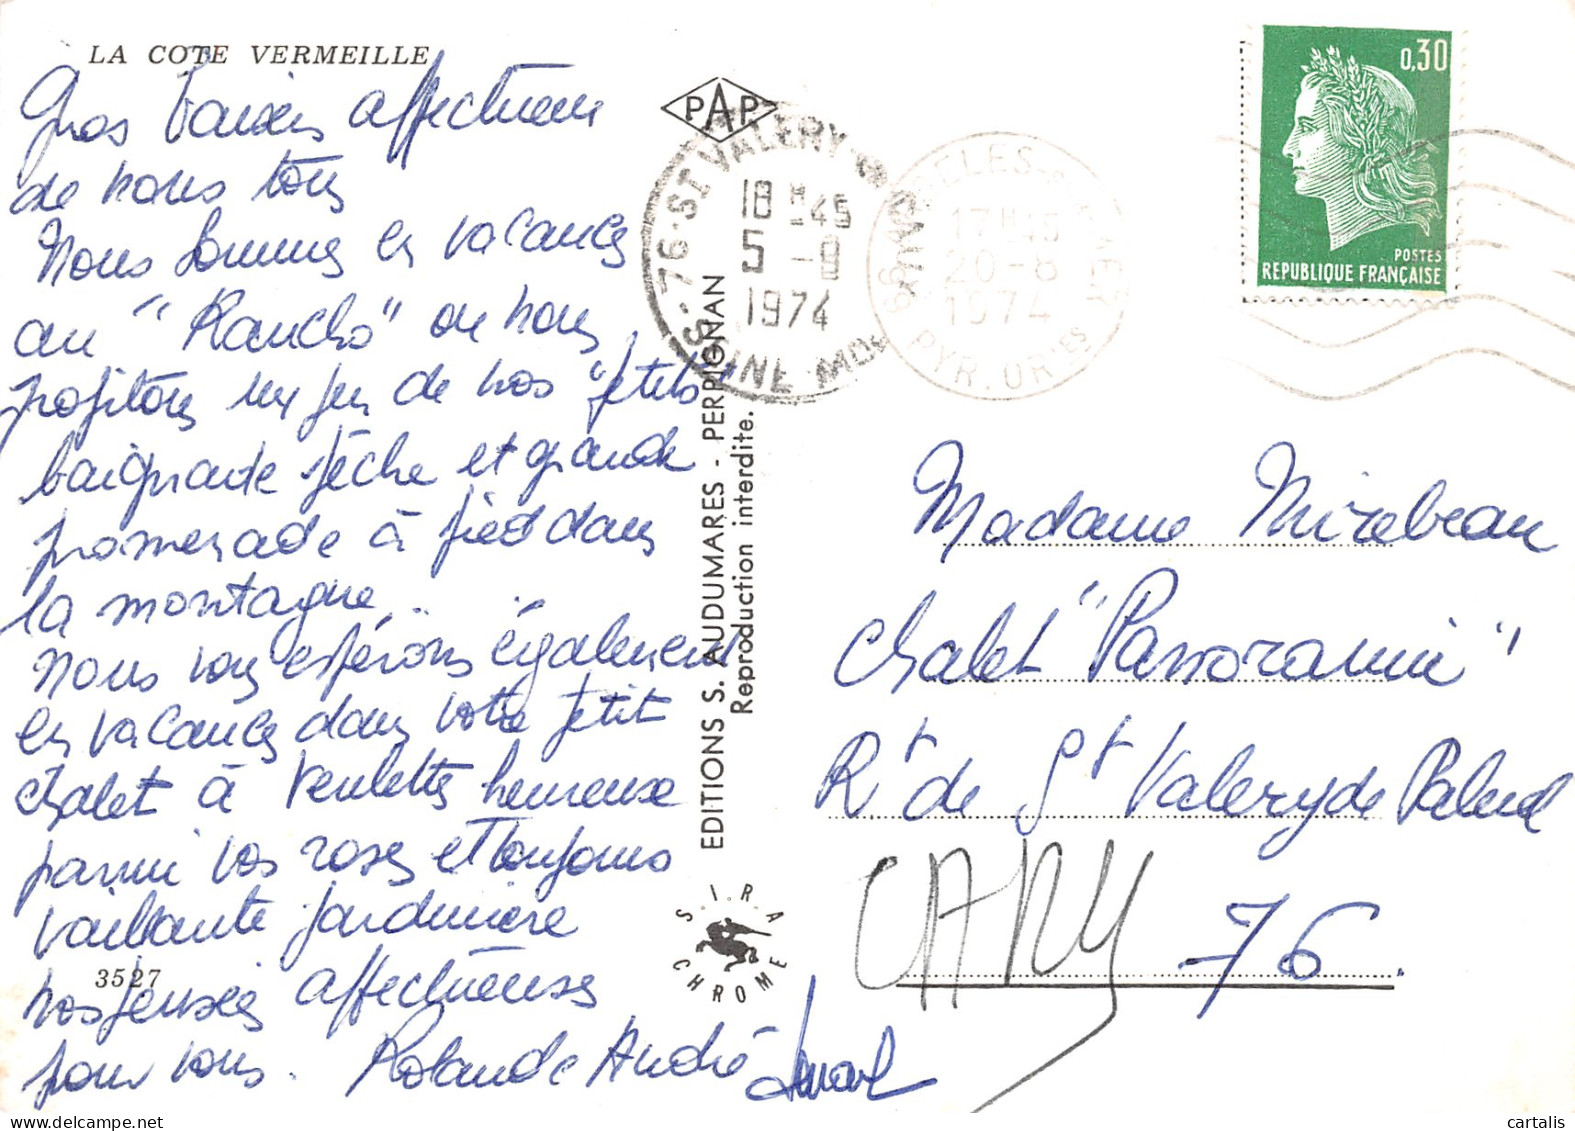 LA COTE VERMEILLE
Gros baisers affectueux
de nous tous
Nous sommes en vacances
au "Rancho" où nous
profitons un peu de nos "petits"
baignade sèche et grande
promenade à pied dans
la montagne.
Nous vous espérons également
en vacances dans votre petit
chalet à Veulettes heureuse
parmi vos roses et toujours
vaillante jardinière
3527
nos pensées affectueuses
pour vous. Rolande André
PAP
76 - ST VALERY
18 H 45
5 - 8
1974
SEINE MME
17 H 45
20 - 8
1974
66 PYR. OR.ES
0,30
POSTES
REPUBLIQUE FRANÇAISE
EDITIONS S. AUDUMARES - PERPIGNAN
Reproduction interdite.
S.I.R.A
CHROME
Madame Mirebeau
Chalet "Panoramic"
Rt de St Valery de
CANY 76.
cartalis